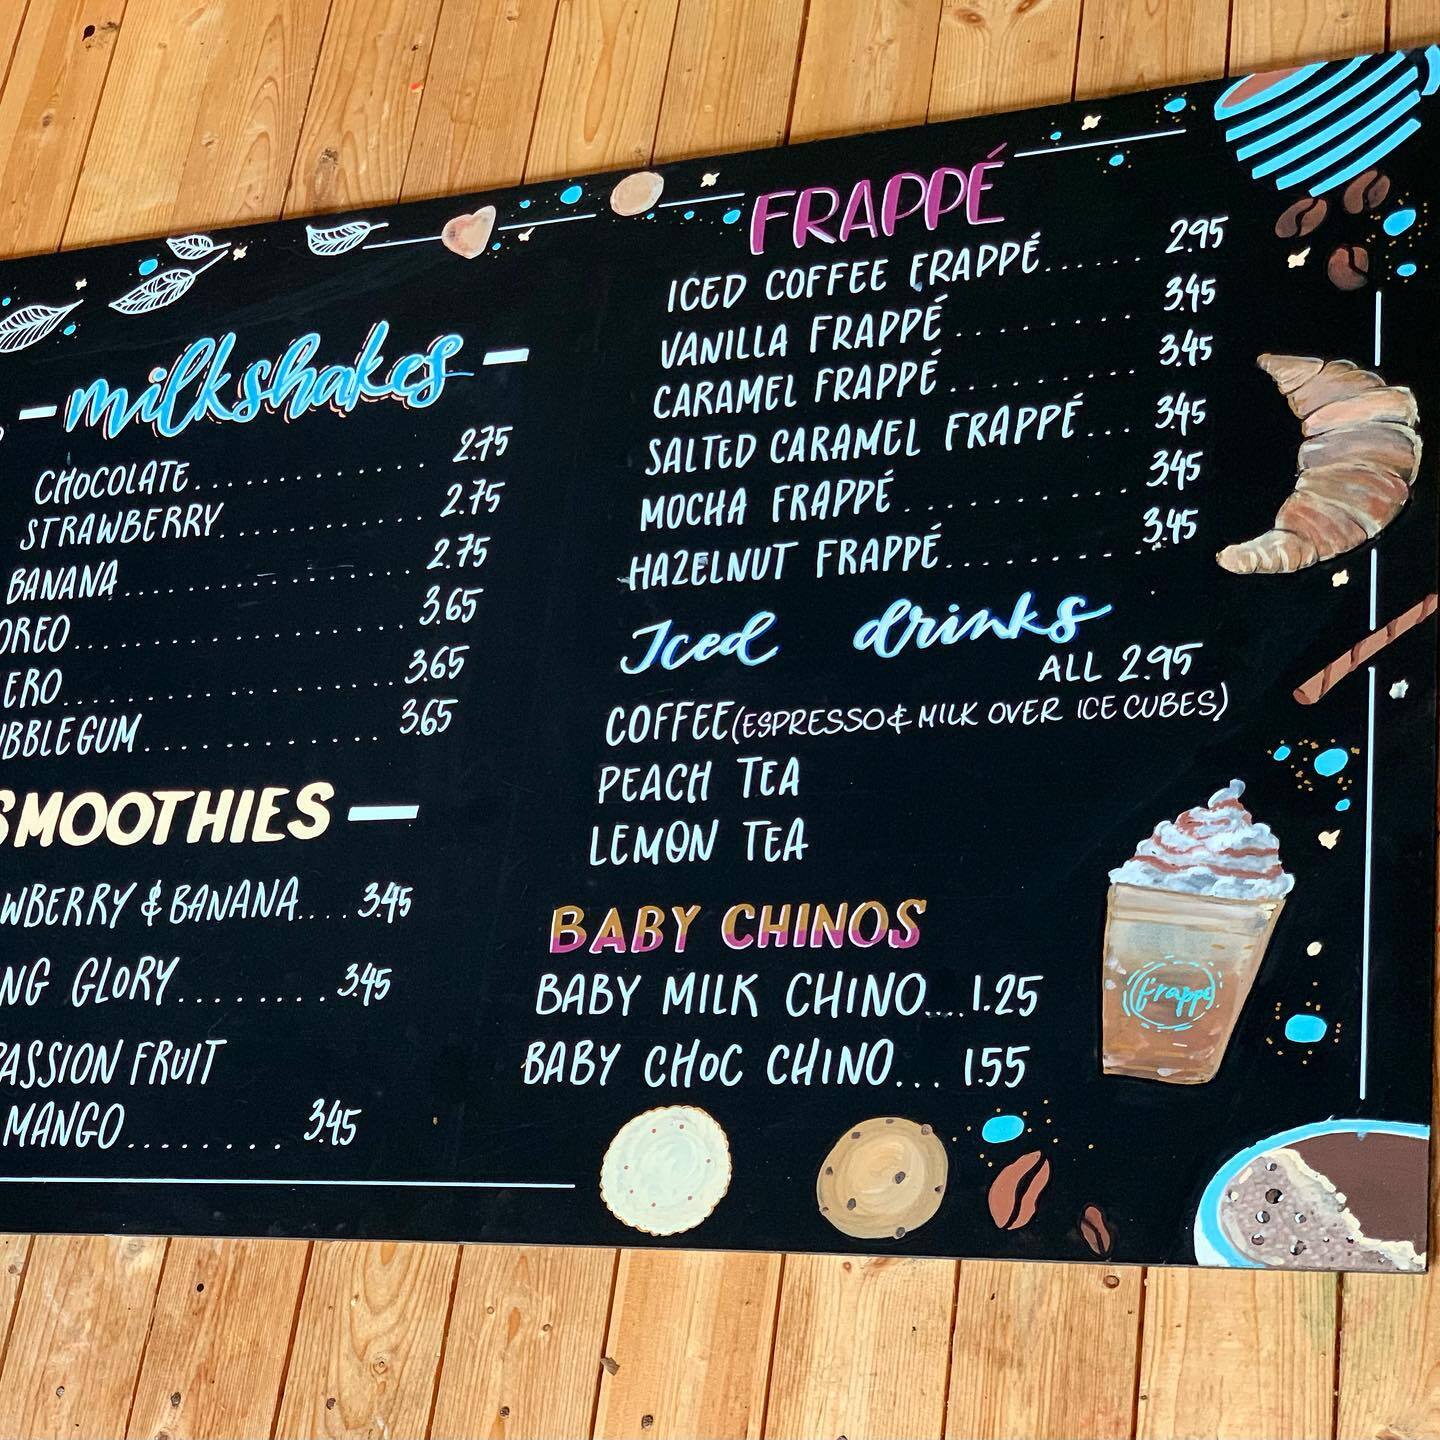 milkshakes
CHOCOLATE............ 2.75
STRAWBERRY............ 2.75
BANANA................ 2.75
OREO.................. 3.65
3.65
3.65
SMOOTHIES
& BANANA.... 3.45
GLORY........ 3.45
PASSION FRUIT
MANGO........ 3.45
FRAPPÉ
ICED COFFEE FRAPPÉ...... 2.95
VANILLA FRAPPÉ......... 3.45
CARAMEL FRAPPÉ.......... 3.45
SALTED CARAMEL FRAPPÉ... 3.45
MOCHA FRAPPÉ........... 3.45
HAZELNUT FRAPPÉ.......... 3.45
Iced drinks
ALL 2.95
COFFEE (ESPRESSO & MILK OVER ICE CUBES)
PEACH TEA
LEMON TEA
BABY CHINOS
BABY MILK CHINO.... 1.25
BABY CHOC CHINO... 1.55
frappé